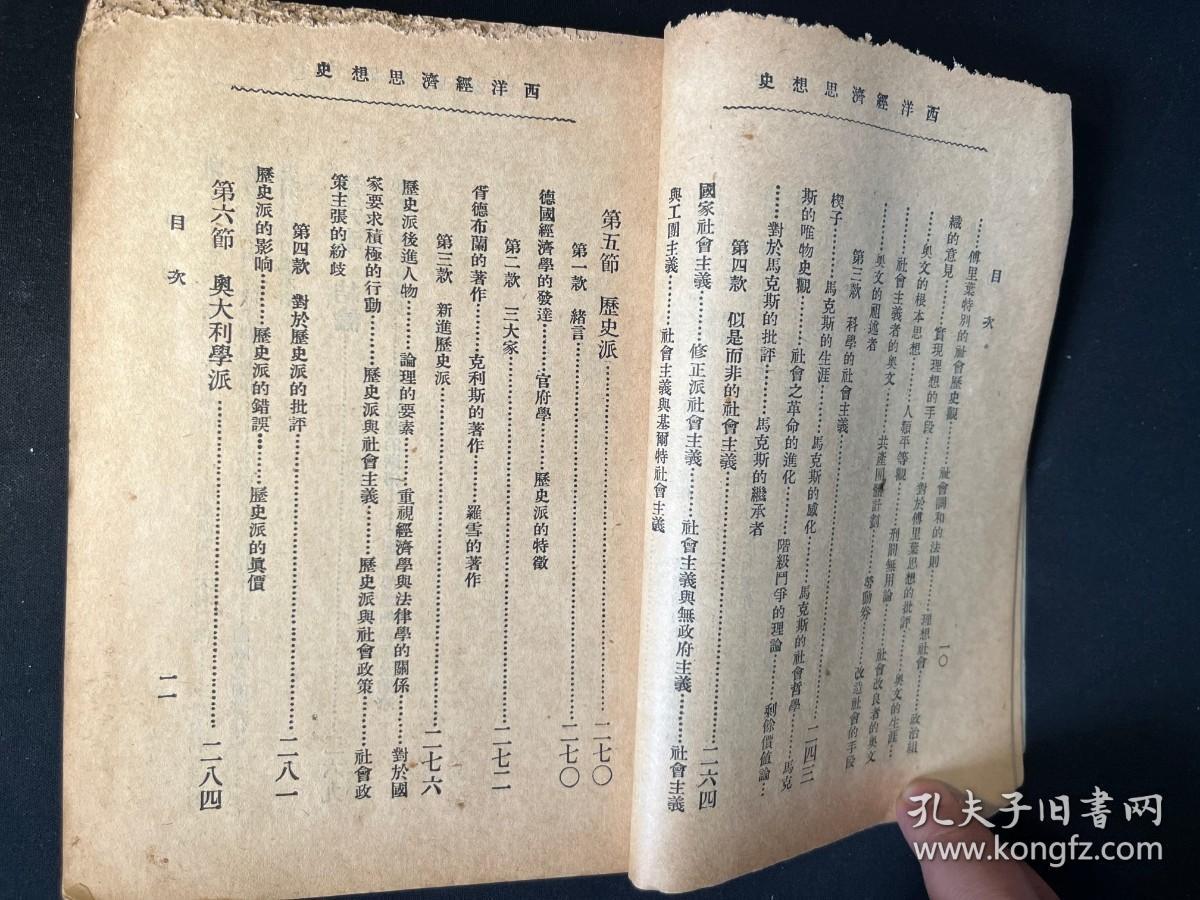 西洋經濟思想史
目次
一〇
……傅里葉特別的社會歷史觀……社會調和的法則……理想社會……政治組
織的意見……實現理想的手段……對於傅里葉思想的批評……奧文的生涯…
……奧文的根本思想……人類平等觀……刑罰無用論……社會改良者的奧文
……社會主義者的奧文……共產團體計劃……勞動券……改造社會的手段
……奧文的祖述者
第三款 科學的社會主義……二四三
楔子……馬克斯的生涯……馬克斯的感化……馬克斯的社會哲學……馬克
斯的唯物史觀……社會之革命的進化……階級鬥爭的理論……剩餘價值論…
……對於馬克斯的批評……馬克斯的繼承者
第四款 似是而非的社會主義……二六四
國家社會主義……修正派社會主義……社會主義與無政府主義……社會主義
與工團主義……社會主義與基爾特社會主義
西洋經濟思想史
第五節 歷史派……二七〇
第一款 緒言……二七〇
德國經濟學的發達……官府學……歷史派的特徵
第二款 三大家……二七二
喜德布蘭的著作……克利斯的著作……羅雪的著作
第三款 新進歷史派……二七六
歷史派後進人物……論理的要素……重視經濟學與法律學的關係……對於國
家要求積極的行動……歷史派與社會主義……歷史派與社會政策……社會政
策主張的紛歧
第四款 對於歷史派的批評……二八一
歷史派的影响……歷史派的錯誤……歷史派的眞價
第六節 奧大利學派……二八四
目次
一一
孔夫子旧书网
www.kongfz.com